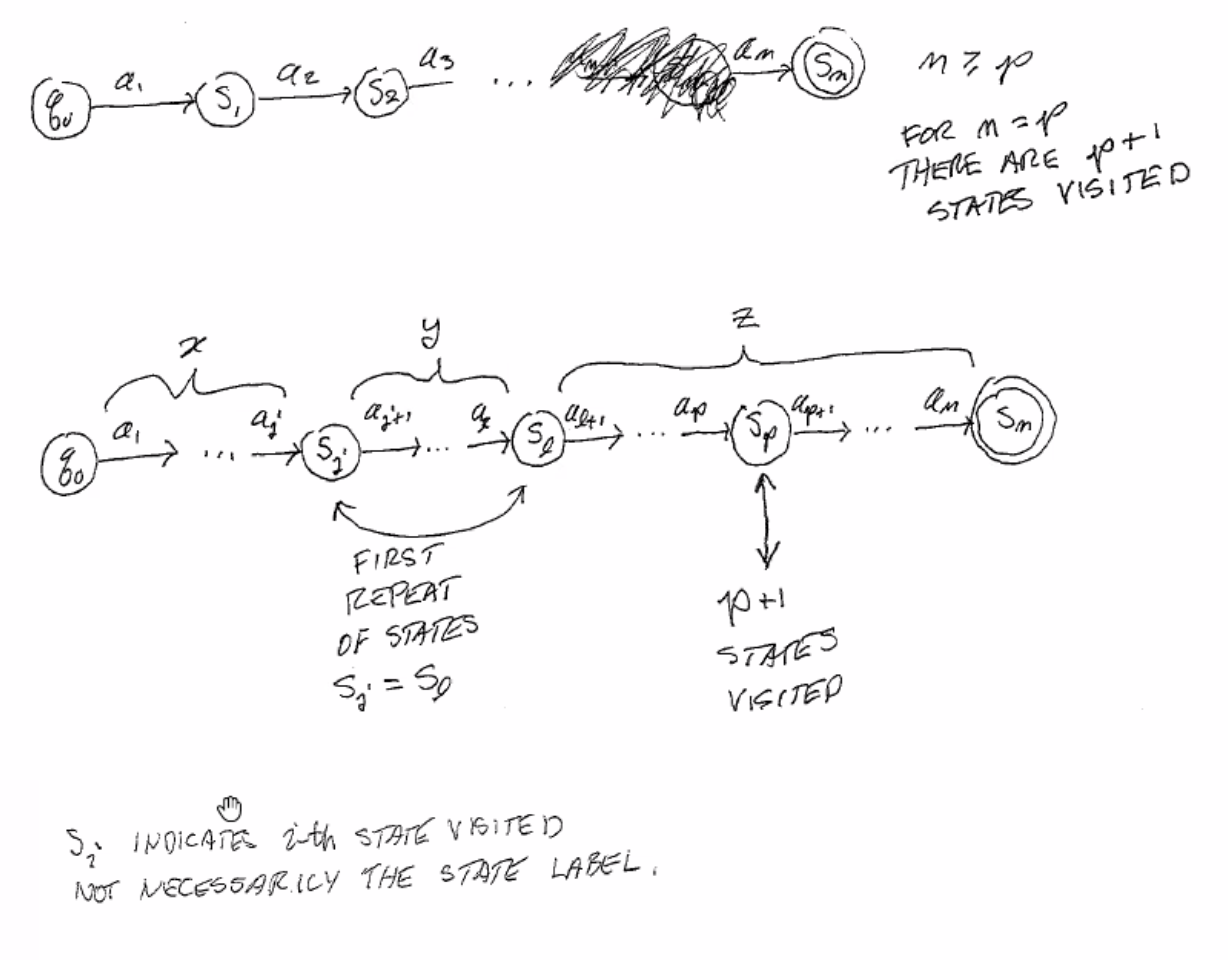 a₁ a₂ a₃ ... aₙ
q₀ S₁ S₂ Sₙ
n ≥ p
FOR n = p
THERE ARE p+1
STATES VISITED
x y z
a₁ ... aⱼ aⱼ₊₁ ... aₗ aₗ₊₁ ... aₚ aₚ₊₁ ... aₙ
q₀ Sⱼ Sₗ Sₚ Sₙ
FIRST
REPEAT
OF STATES
Sⱼ = Sₗ
p+1
STATES
VISITED
Sᵢ INDICATES i-th STATE VISITED
NOT NECESSARILY THE STATE LABEL.